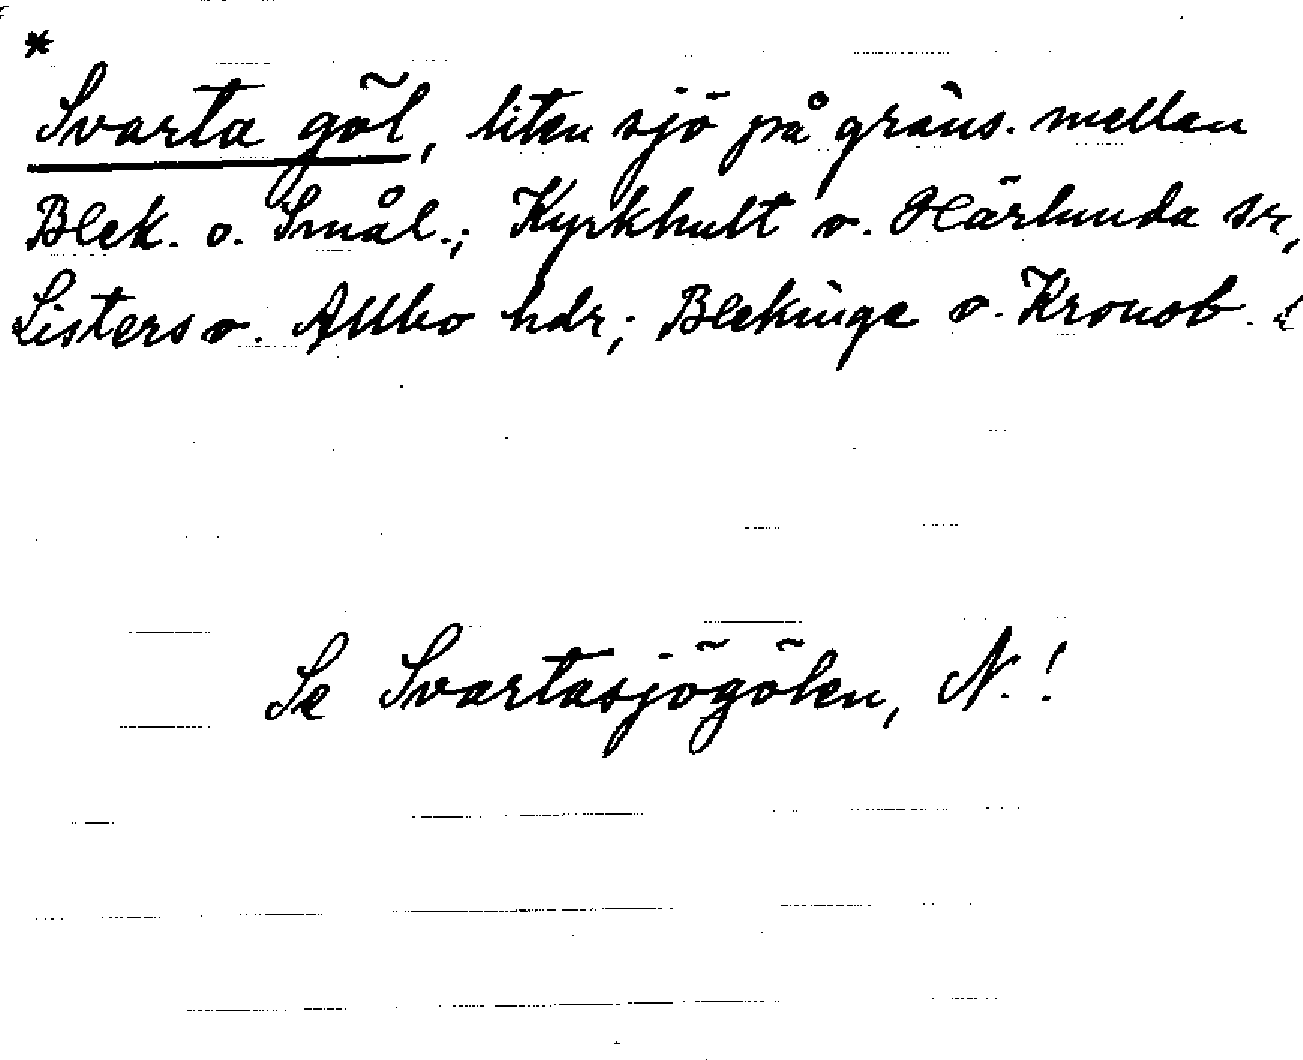 *
Svarta göl, liten sjö på gräns. mellan
Blek. o. Smål.; Kyrkhult o. Härlunda sr,
Listers o. Allbo hdr; Blekinge o. Kronob.
Se Svartasjögölen, N.!